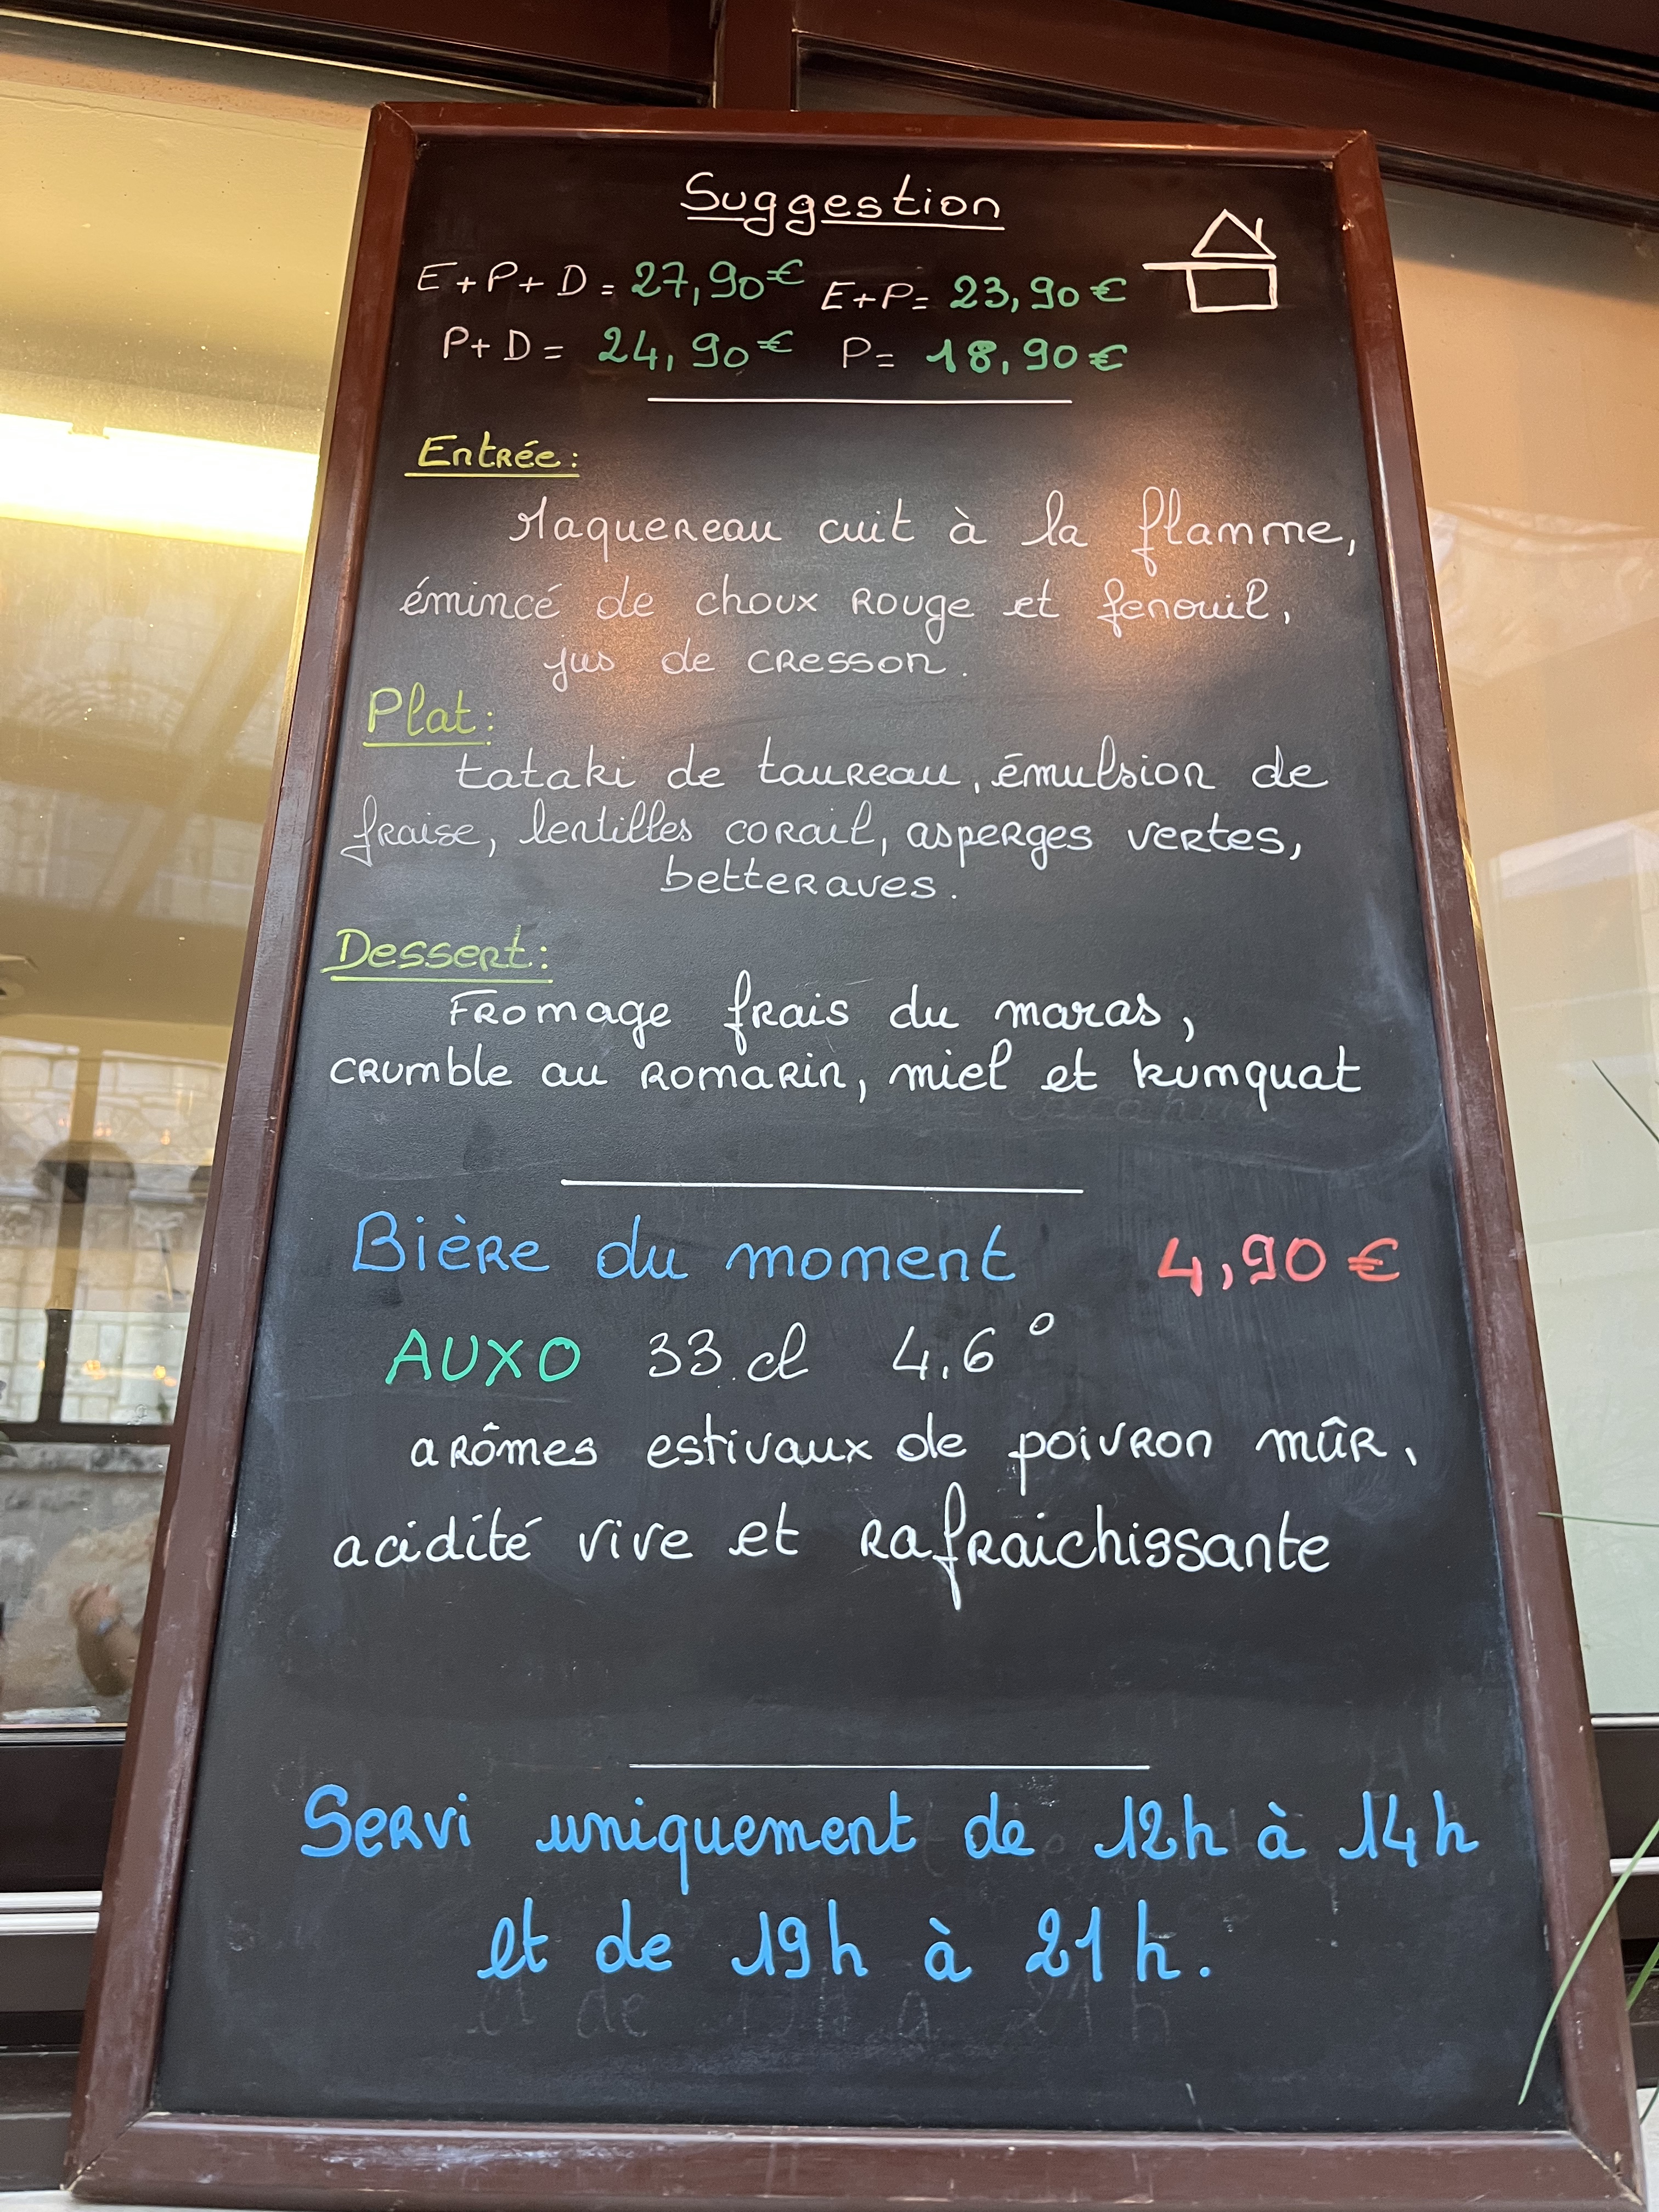 Suggestion
E+P+D = 27,90€ E+P= 23,90€
P+D = 24,90€ P= 18,90€
Entrée :
Maquereau cuit à la flamme,
émincé de choux rouge et fenouil,
jus de cresson.
Plat :
tataki de taureau, émulsion de
fraise, lentilles corail, asperges vertes,
betteraves.
Dessert :
Fromage frais du maras,
crumble au romarin, miel et kumquat
Bière du moment 4,90€
AUXO 33.cl 4,6°
arômes estivaux de poivron mûr,
acidité vive et rafraichissante
Servi uniquement de 12h à 14h
et de 19h à 21h.
et de 19h à 21h